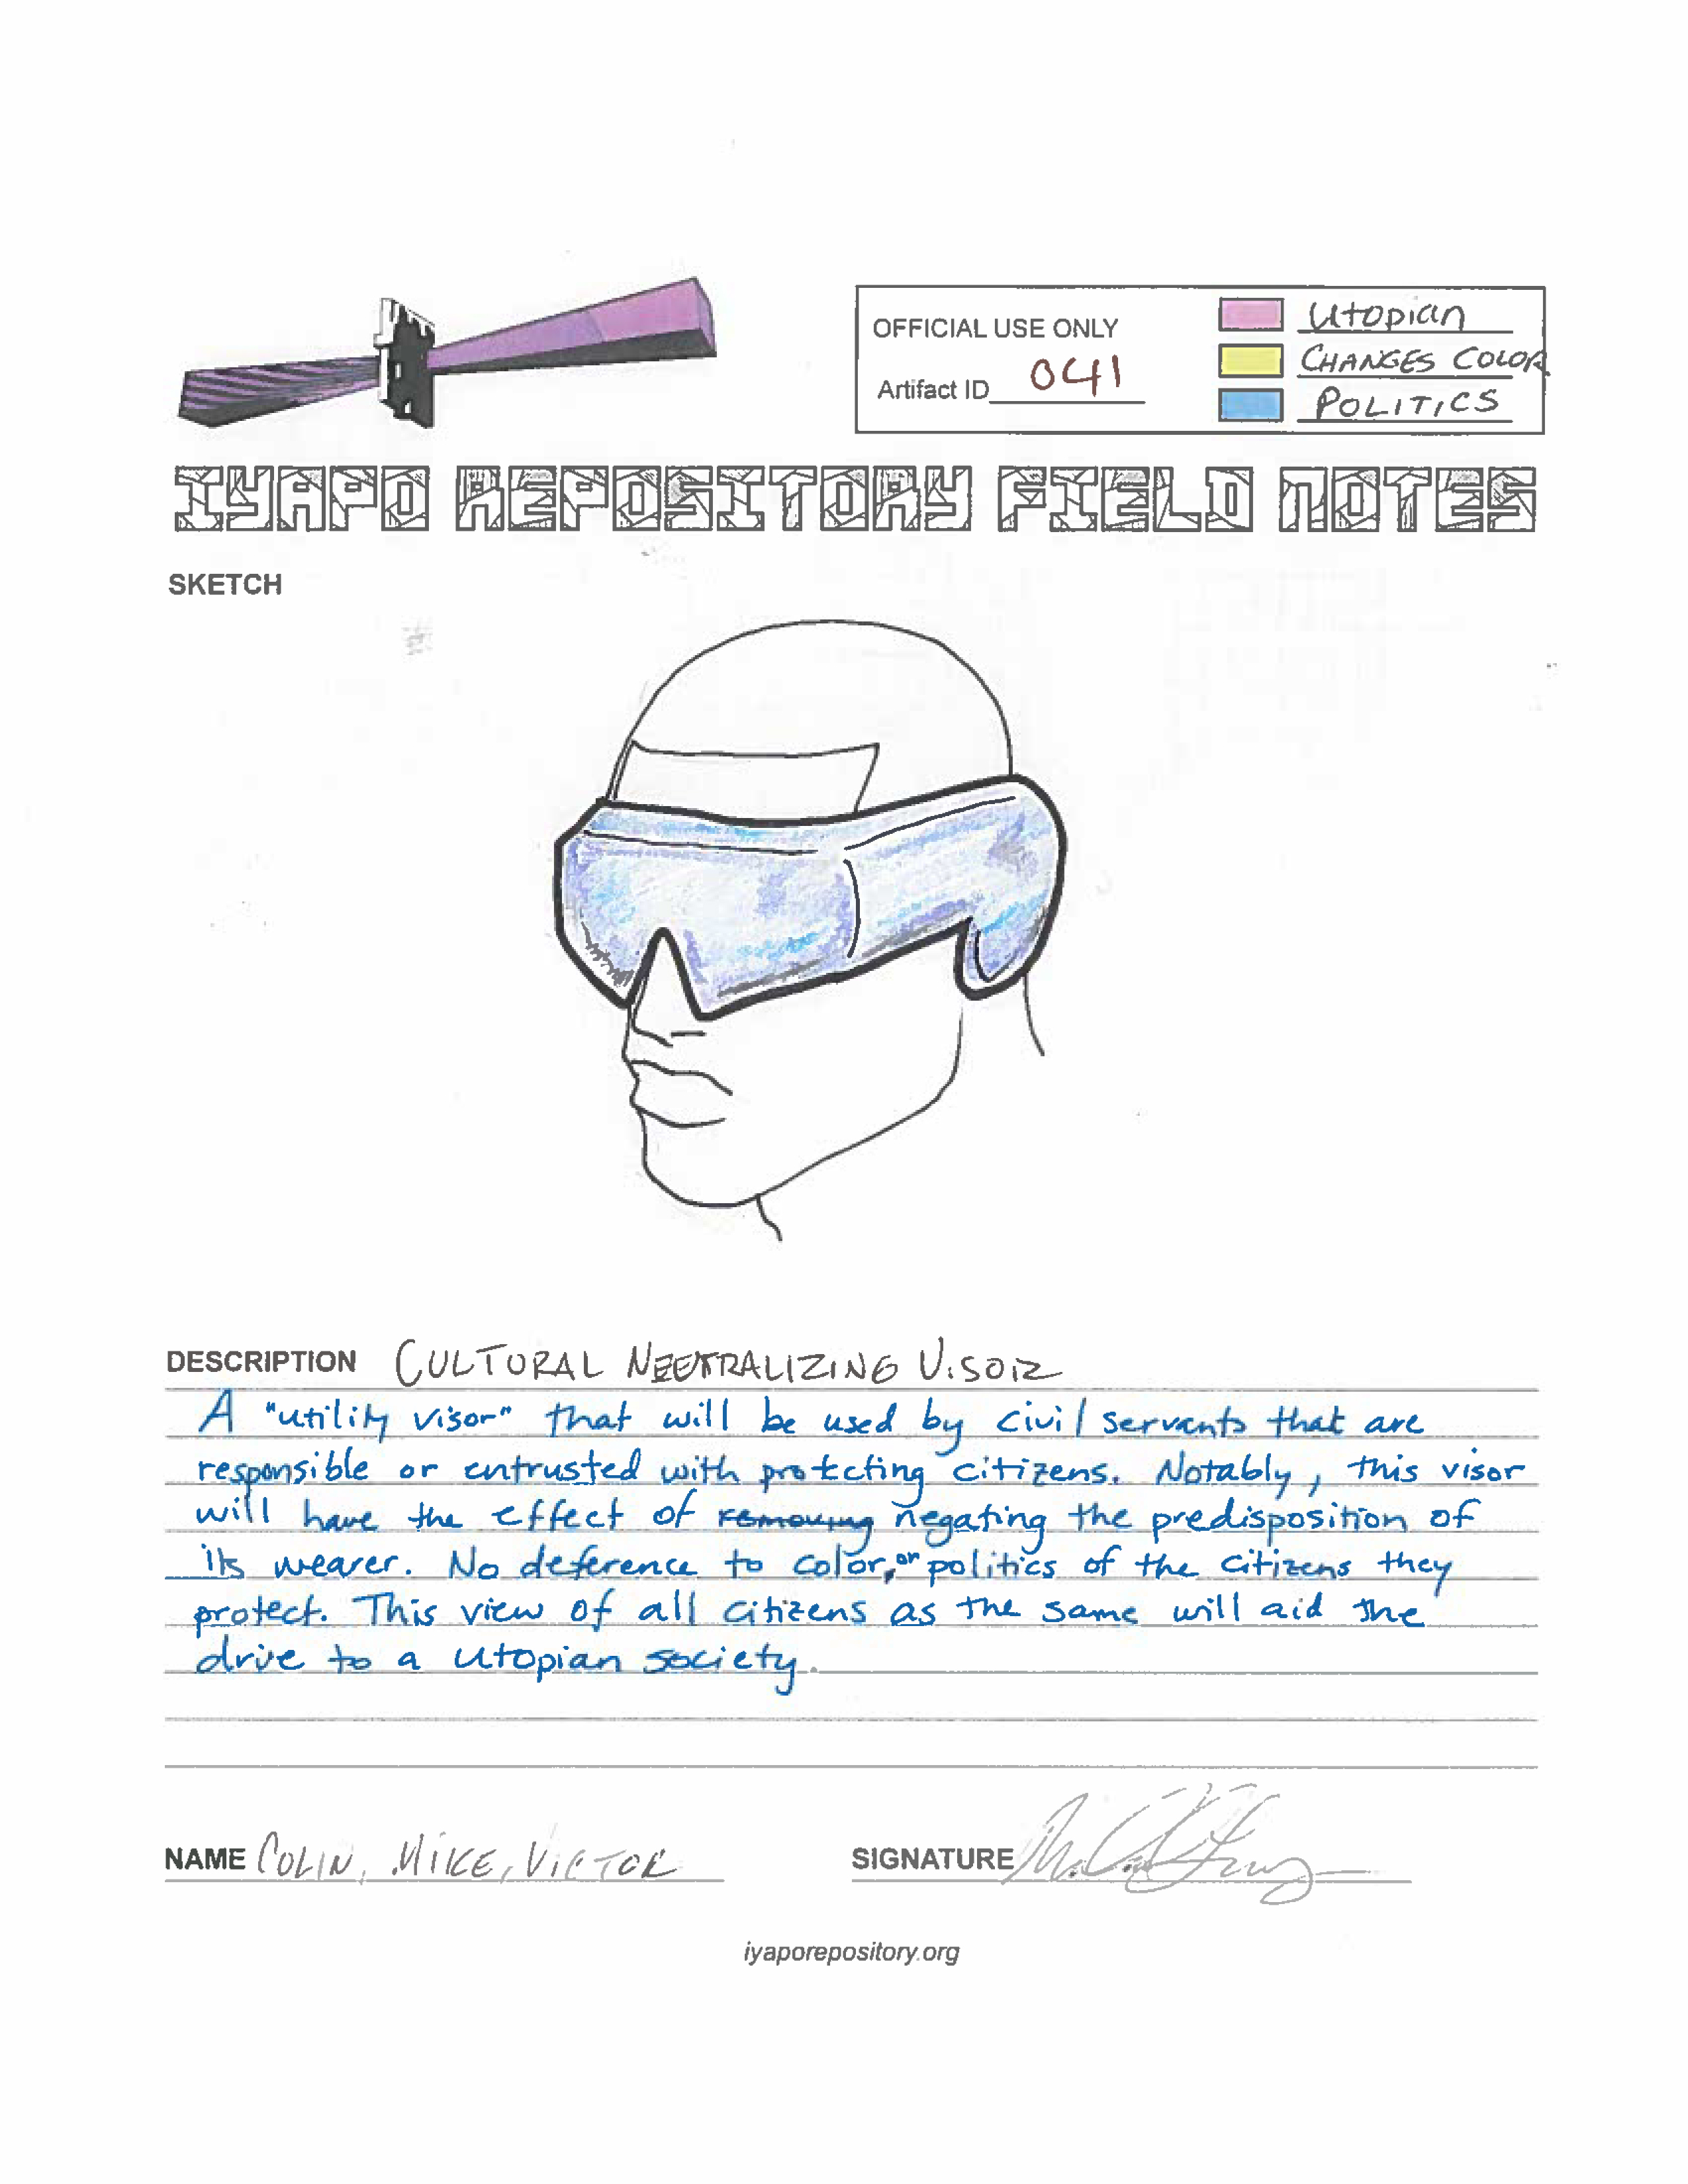 OFFICIAL USE ONLY
Artifact ID 041
Utopian
CHANGES COLOR
POLITICS
IYAPO REPOSITORY FIELD NOTES
SKETCH
DESCRIPTION CULTURAL NEUTRALIZING VISOR
A "utility visor" that will be used by civil servants that are
responsible or entrusted with protecting citizens. Notably, this visor
will have the effect of removing negating the predisposition of
its wearer. No deference to color, or politics of the citizens they
protect. This view of all citizens as the same will aid the
drive to a utopian society.
NAME COLIN, MIKE, VICTOR
SIGNATURE
iyaporepository.org